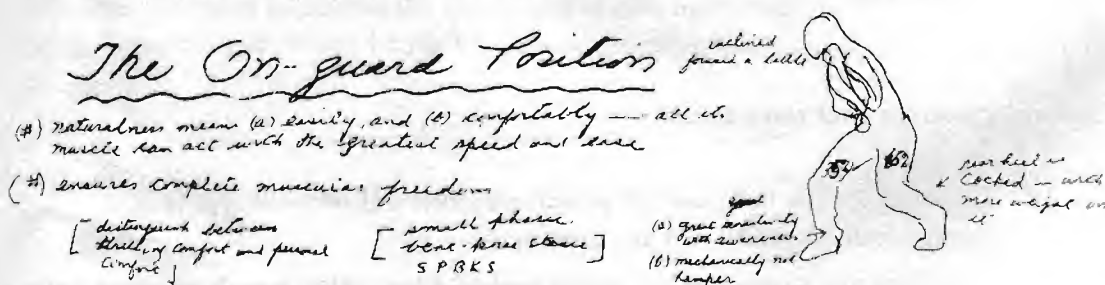 The On-guard Position
inclined
forward a little
(#) naturalness means (a) easily, and (b) comfortably — all its
muscle can act with the greatest speed and ease
(#) ensures complete muscular freedom
[distinguish between
thrilling comfort and personal
comfort]
[small phasic
bent-knee stance]
S P B K S
good
(a) great sensitivity
with awareness
(b) mechanically not
hamper
rear heel is
cocked with
more weight on
it